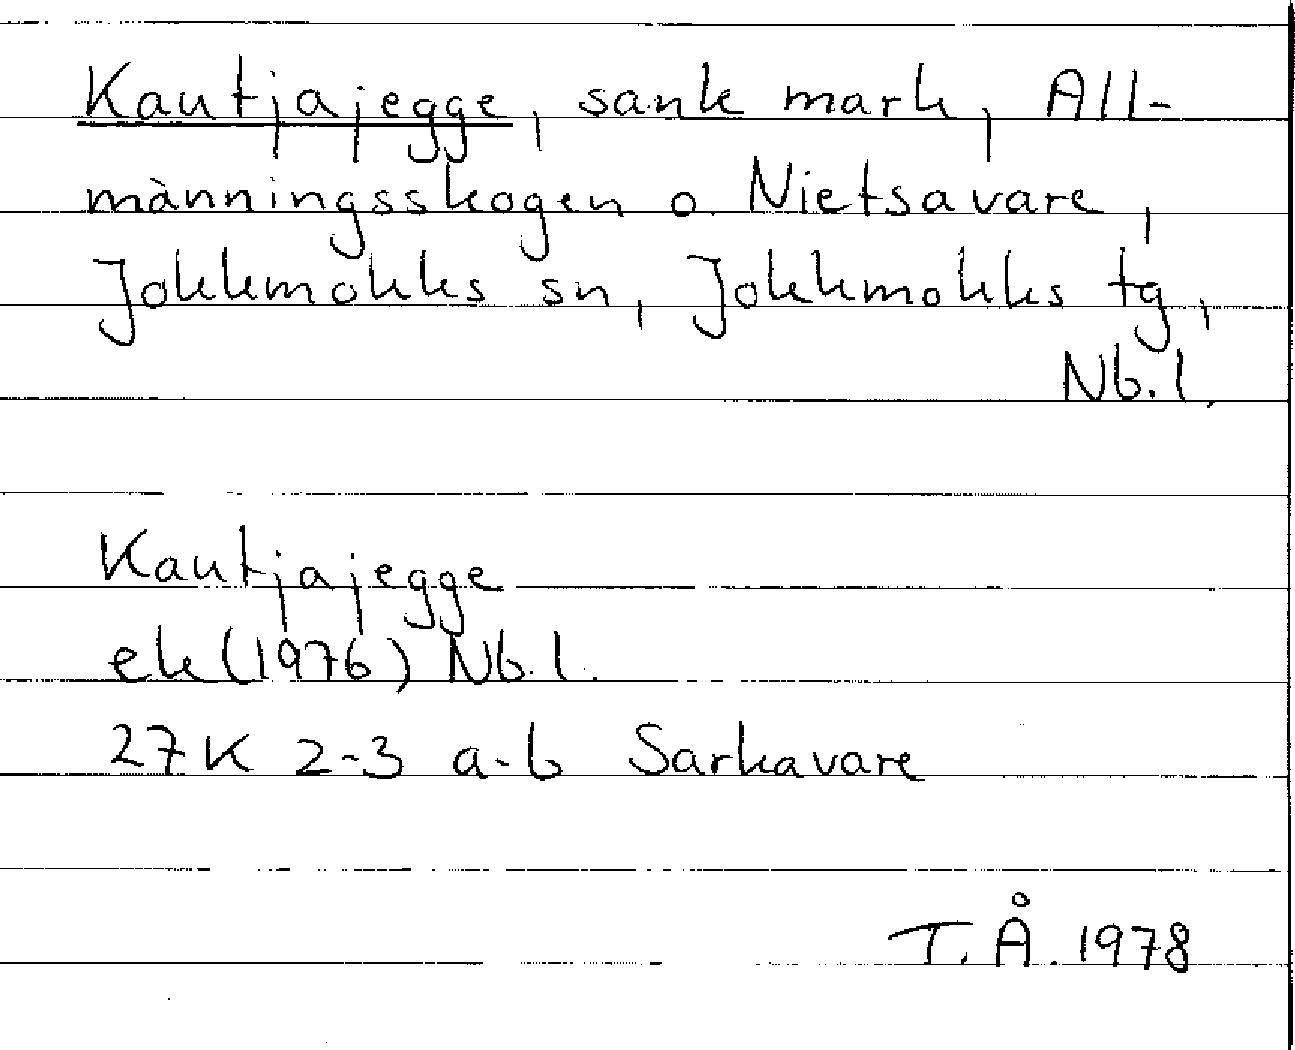 Kautjajegge, sank mark, All-
männingsskogen o. Nietsavare,
Jokkmokks sn, Jokkmokks tg,
Nb.l.
Kautjajegge
ek(1976) Nb.l.
27K 2-3 a-b Sarkavare
T.Å. 1978